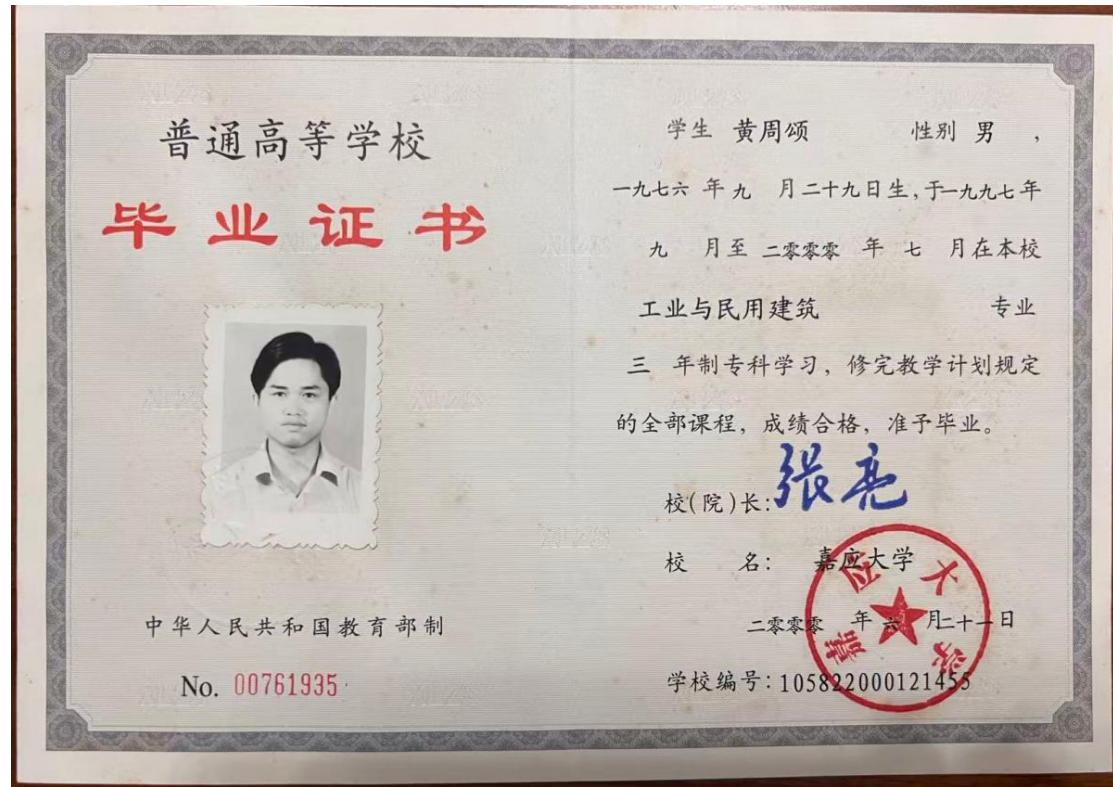 普通高等学校
毕业证书
中华人民共和国教育部制
No. 00761935
学生 黄周颂 性别 男 ,
一九七六 年 九 月二十九日生,于一九九七年
九 月至 二零零零 年 七 月在本校
工业与民用建筑 专业
三 年制专科学习,修完教学计划规定
的全部课程,成绩合格,准予毕业。
校(院)长:张亮
校 名: 嘉应大学
二零零零 年 六 月二十一日
学校编号:105822000121455
嘉应大学